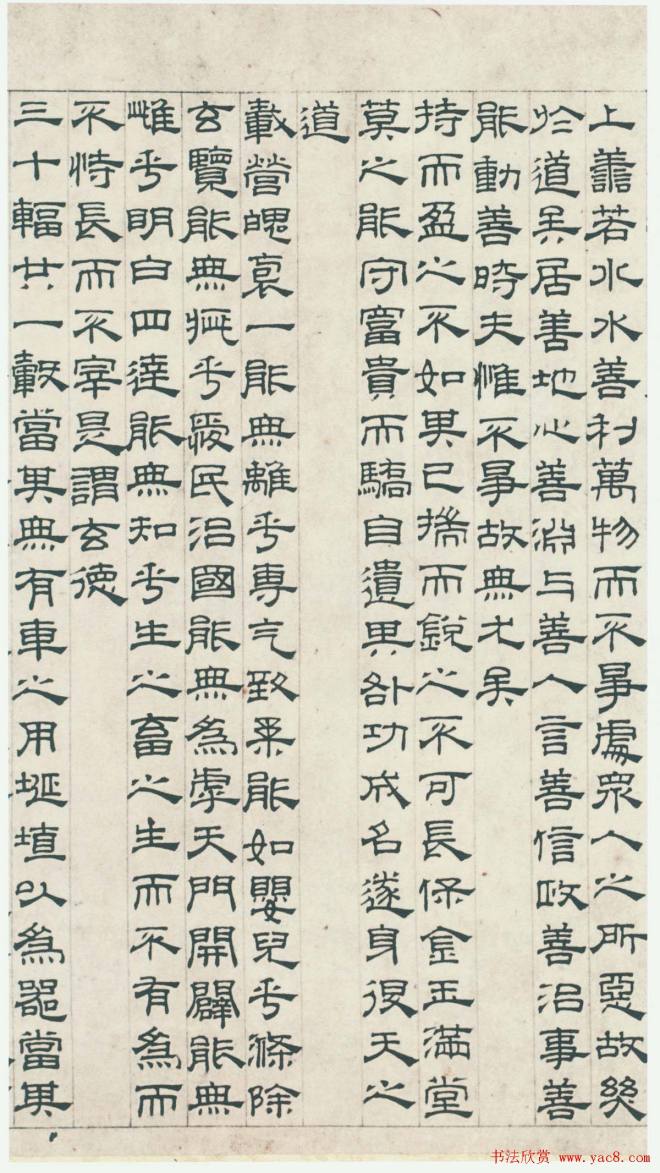 上善若水水善利萬物而不爭處眾人之所惡故幾
於道矣居善地心善淵与善人言善信政善治事善
能動善時夫惟不爭故無尤矣
持而盈之不如其已揣而銳之不可長保金玉滿堂
莫之能守富貴而驕自遺其咎功成名遂身退天之
道
載營魄袌一能無離乎專气致柔能如嬰兒乎滌除
玄覽能無疵乎愛民治國能無為虖天門開闢能無
雌乎明白四達能無知乎生之畜之生而不有為而
不恃長而不宰是謂玄德
三十輻共一轂當其無有車之用埏埴以為器當其
书法欣赏 www.yac8.com